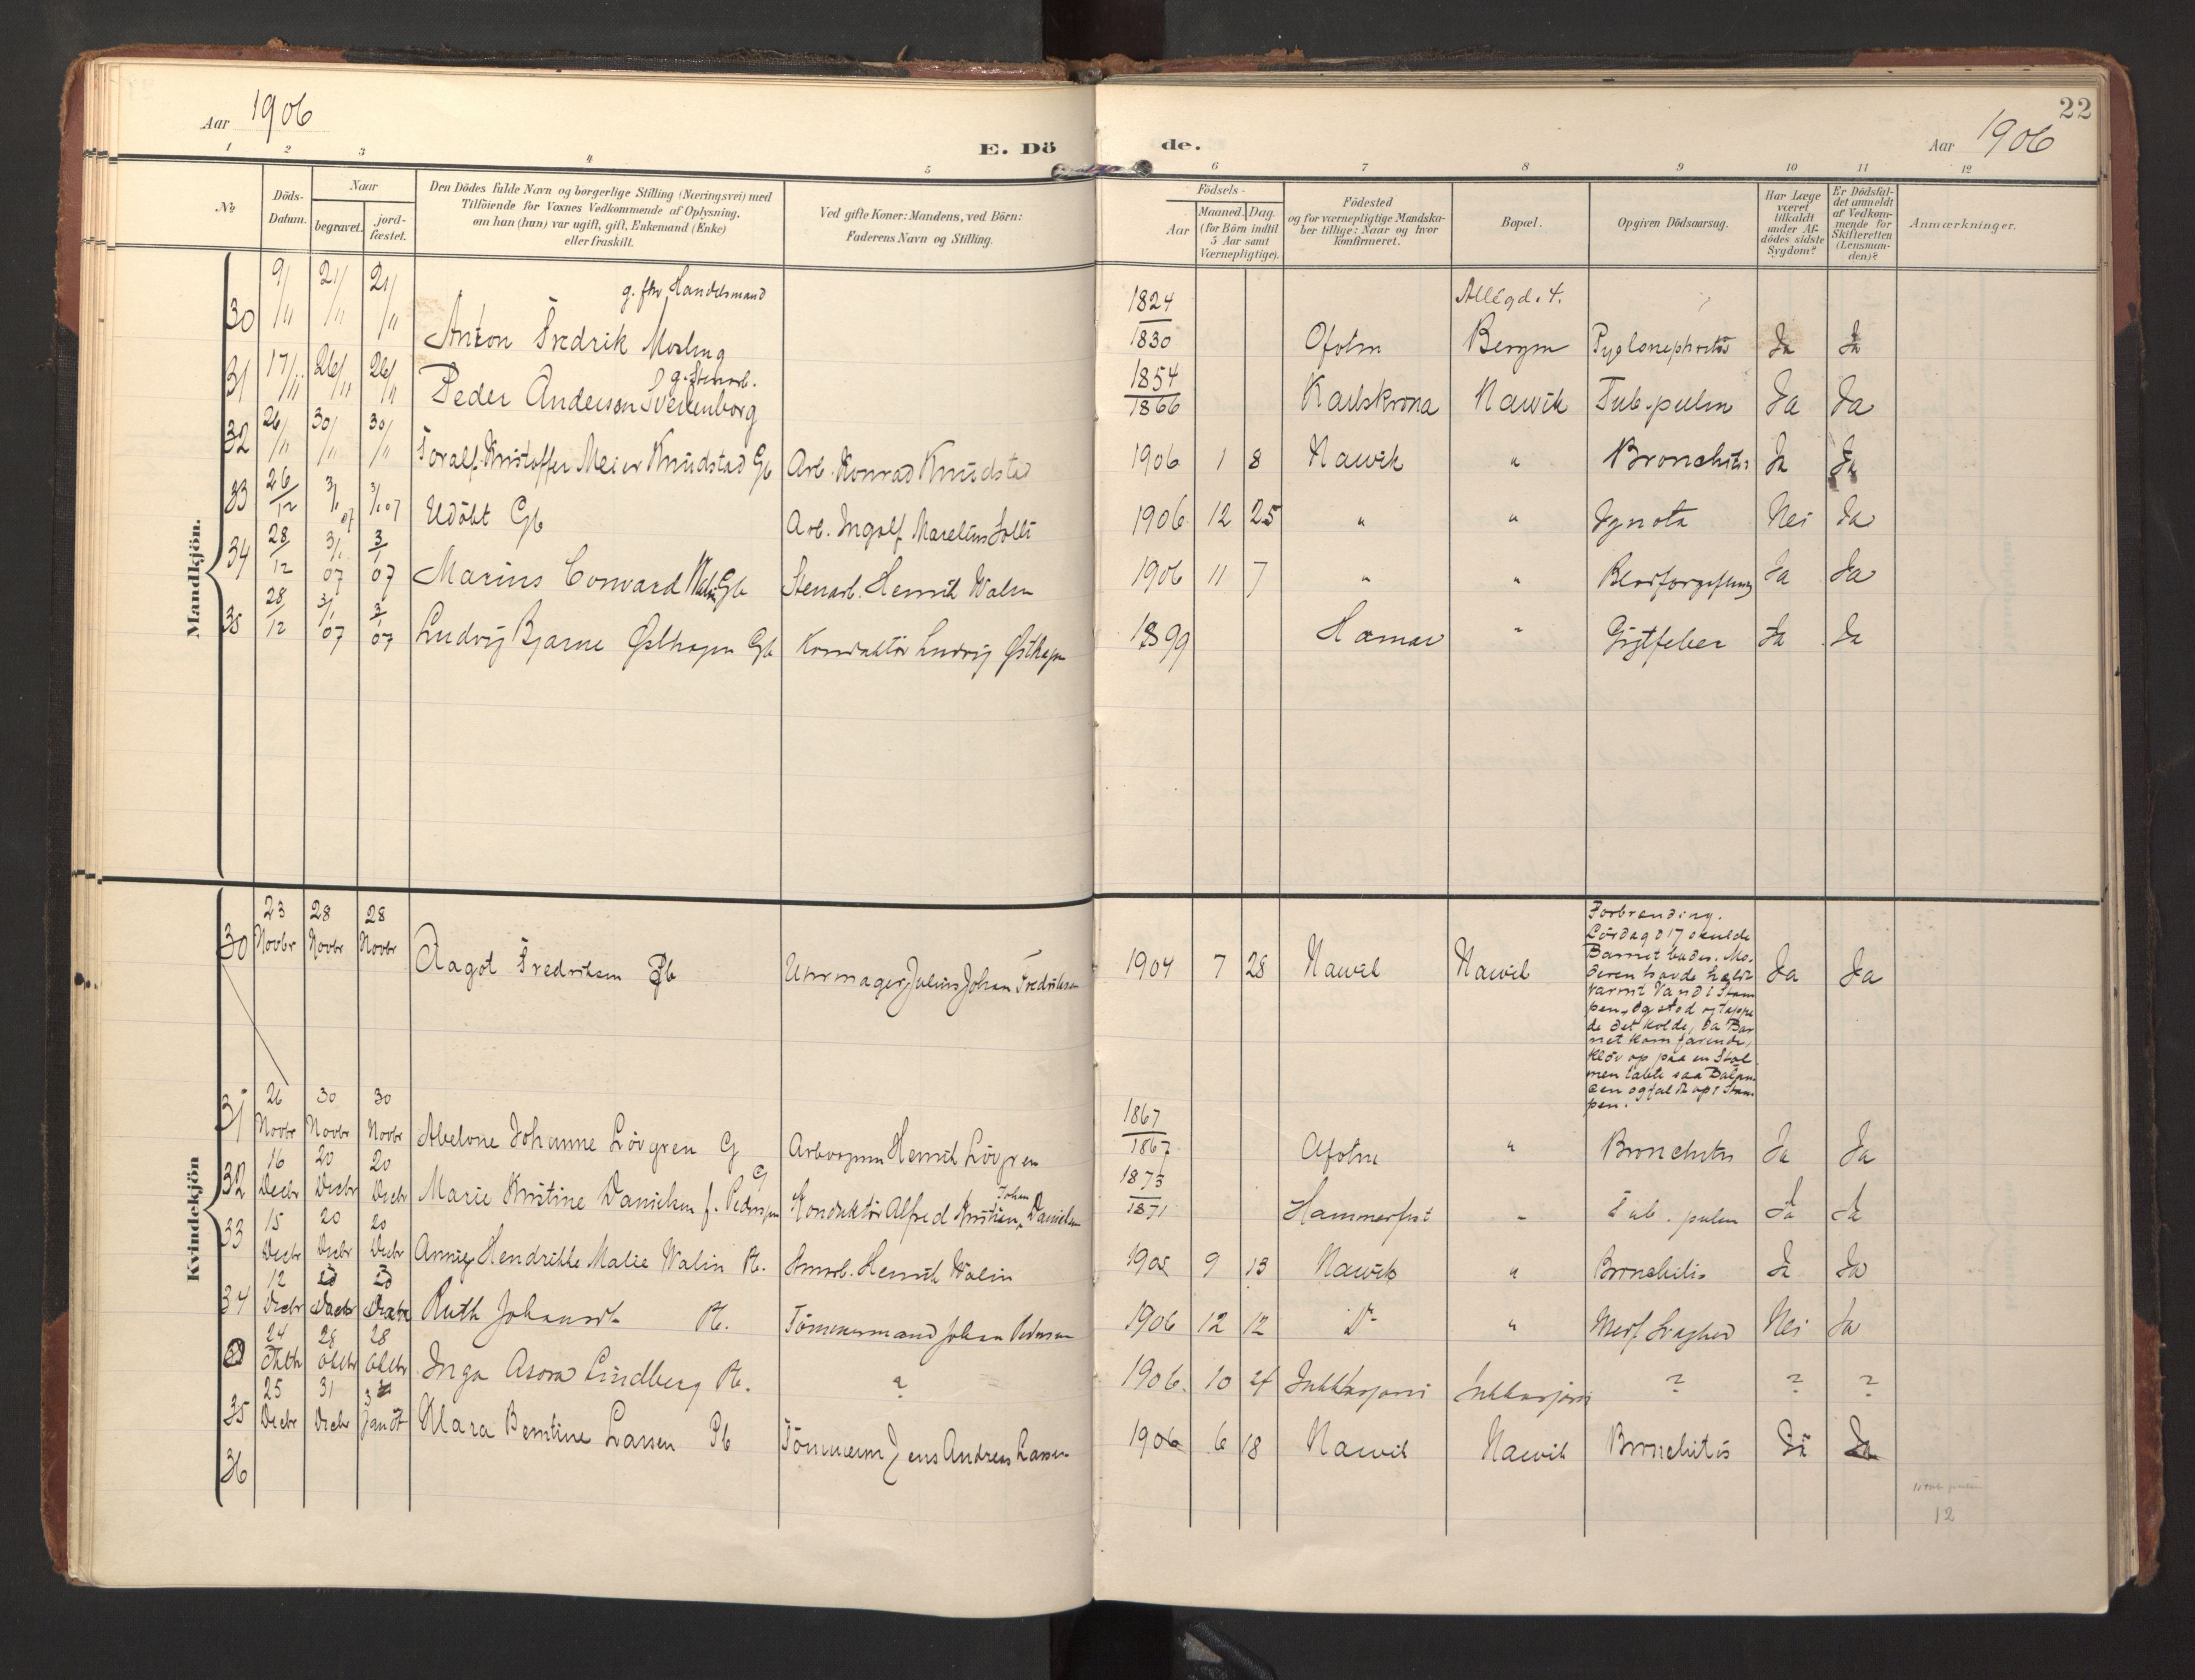 Aar 1906
E. Dö
de.
Aar 1906
22
1 2 3 4 5 6 7 8 9 10 11 12
No
Döds-
Datum.
Naar
begravet.
jord-
fæstet.
Den Dödes fulde Navn og borgerlige Stilling (Næringsvei) med
Tilföiende for Voxnes Vedkommende af Oplysning,
om han (hun) var ugift, gift, Enkemand (Enke)
eller fraskilt.
Ved gifte Koner: Mandens, ved Börn:
Faderens Navn og Stilling.
Födsels-
Aar
Maaned. Dag.
(for Börn indtil
5 Aar samt
Værnepligtige).
Födested
og for værnepligtige Mandska-
ber tillige: Naar og hvor
konfirmeret.
Bopæl.
Opgiven Dödsaarsag.
Har Læge
været
tilkaldt
under Af-
dödes sidste
Sygdom?
Er Dödsfal-
det anmeldt
af Vedkom-
mende for
Skifteretten
(Lensman-
den)?
Anmærkninger.
Mandkjön.
g. fhv. Handelsmand
30 9/11 21/11 21/11 Anton Fredrik Mosling 1824/1830 Ofoten Allégd. 4. Bergen Pyelonephritis Ja Ja
g. Stenarb.
31 17/11 26/11 26/11 Peder Anderson Svedenborg 1854/1866 Karlskrona Narvik Tub. pulm Ja Ja
32 26/11 30/11 30/11 Toralf Kristoffer Meier Knudstad Gb Arb. Konrad Knudstad 1906 1 8 Narvik " Bronchitis Ja Ja
33 26/12 3/1 07 3/1 07 Udöbt Gb Arb. Ingolf Marelius Solli 1906 12 25 " " Ignota Nei Ja
34 28/12 3/1 07 3/1 07 Marius Conrard Walin Gb Stenarb. Henrik Walin 1906 11 7 " " Blodforgiftning Ja Ja
35 28/12 3/1 07 3/1 07 Ludvig Bjarne Østhagen Gb Konduktör Ludvig Østhagen 1899 Hamar " Gigtfeber Ja Ja
Kvindekjön
30 23 Novbr 28 Novbr 28 Novbr Aagot Fredriksen Pb Uhrmager Julius Johan Fredriksen 1904 7 28 Narvik Narvik
Forbrending.
Lördag d 17 skulde
Barnet bades. Mo-
deren havde hældt
varmt Vand i Stam
pen, og stod og tappe
de det kolde, da Bar
net kom farende,
klöv op paa en Stol
men tabte saa Balan
cen og faldt op i Stam
pen.
Ja Ja
31 26 Novbr 30 Novbr 30 Novbr Abelone Johanne Lövgren G Arbeidsmn Henrik Lövgren 1867/1867 Ofoten " Bronchitis Ja Ja
32 16 Decbr 20 Decbr 20 Decbr Marie Kristine Danielsen f. Pedersen G Konduktör Alfred Kristian Johan Danielsen 1873/1871 Hammerfest " Tub. pulm Ja Ja
33 15 Decbr 20 Decbr 20 Decbr Annie Hendrikke Malie Walin Pb. Stenarb. Henrik Walin 1905 9 13 Narvik " Bronchitis Ja Ja
34 12 Decbr 20 Decbr 20 Decbr Ruth Johansdt Pb. Tömmermand Johan Pedersen 1906 12 12 Do " Medf. Svaghed Nei Ja
24 Oktbr 28 Oktbr 28 Oktbr Inga Asora Lindberg Pb. ? 1906. 10 4 Jukkasjärvi Jukkasjärvi ? ? ?
35 25 Decbr 31 Decbr 3 Jan 07 Klara Berntine Larsen Pb Tömmerm Jens Andreas Larsen 1906 6 18 Narvik Narvik Bronchitis Ja Ja
36
12